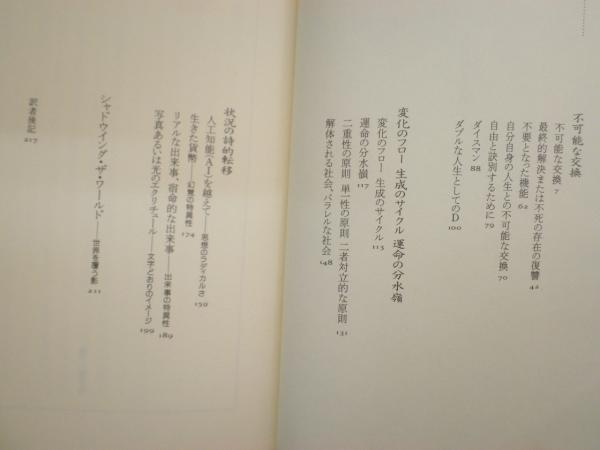 不可能な交換
不可能な交換 7
最終的解決または不死の存在の復讐 42
不要となった機能 62
自分自身の人生との不可能な交換 70
自由と訣別するために 79
ダイスマン 88
ダブルな人生としてのD 100
変化のフロー 生成のサイクル 運命の分水嶺
変化のフロー 生成のサイクル 113
運命の分水嶺 117
二重性の原則 単一性の原則 二者対立的な原則 131
解体される社会、パラレルな社会 148
状況の詩的転移
人工知能(AI)を越えて——思想のラディカルさ 159
生きた貨幣——幻覚の特異性 174
リアルな出来事、宿命的な出来事——出来事の特異性 189
写真あるいは光のエクリチュール——文字どおりのイメージ 199
シャドウイング・ザ・ワールド——世界を覆う影 211
訳者後記 217